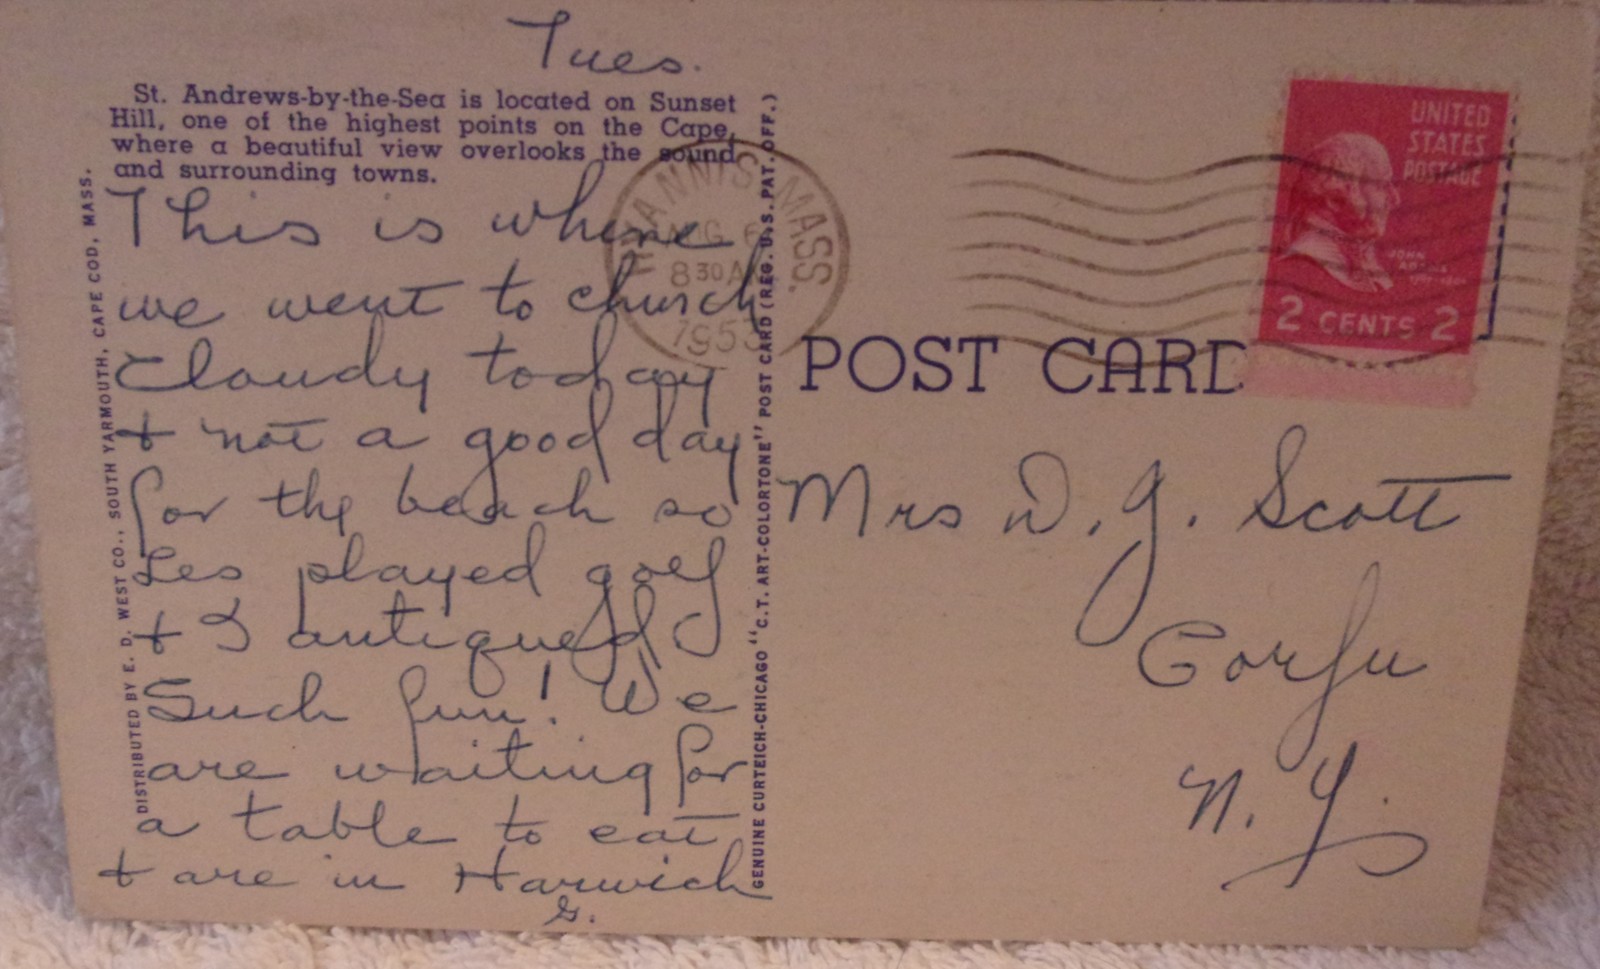 Tues.
St. Andrews-by-the-Sea is located on Sunset
Hill, one of the highest points on the Cape,
where a beautiful view overlooks the sound
and surrounding towns.
This is where
we went to church
Cloudy today
+ not a good day
for the beach so
Les played golf
+ I antiqued
Such fun! We
are waiting for
a table to eat
+ are in Harwich
G.
DISTRIBUTED BY E. D. WEST CO., SOUTH YARMOUTH, CAPE COD, MASS.
GENUINE CURTEICH-CHICAGO "C.T. ART-COLORTONE" POST CARD (REG. U.S. PAT. OFF.)
HYANNIS MASS.
AUG 6
8 30 A
1953
UNITED
STATES
POSTAGE
JOHN
ADAMS
2 CENTS 2
POST CARD
Mrs D. G. Scott
Corfu
N. Y.